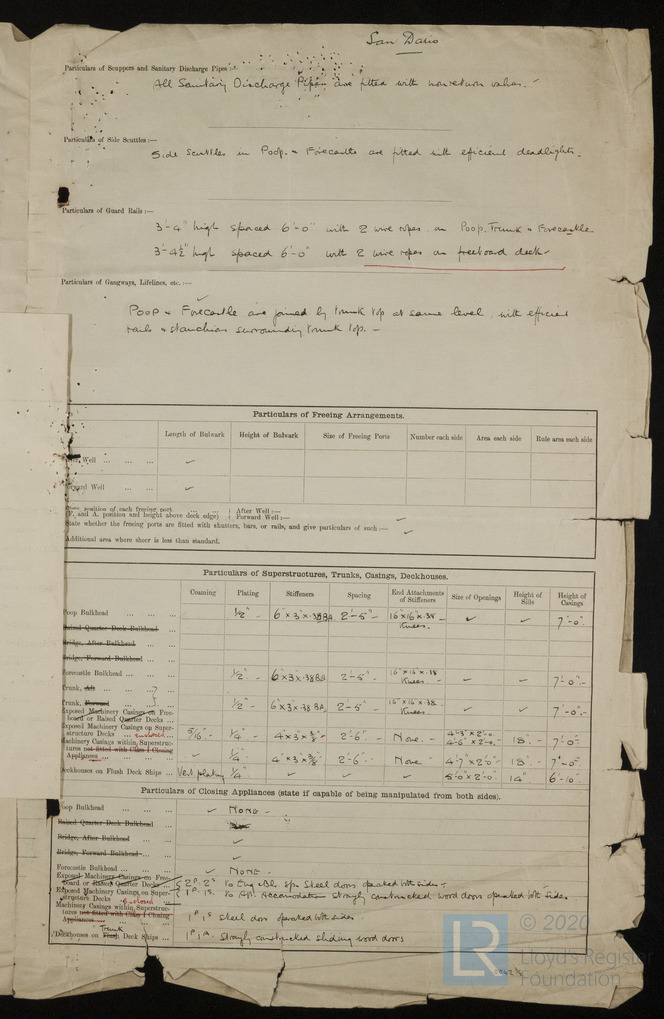 San Dario
Particulars of Scuppers and Sanitary Discharge Pipes :—
All Sanitary Discharge Pipes are fitted with nonreturn valves. -
Particulars of Side Scuttles :—
Side Scuttles in Poop. & Forecastle are fitted with efficient deadlights.
Particulars of Guard Rails :—
3'-4" high spaced 6'-0" with 2 wire ropes on Poop, Trunk & Forecastle
3'-4½" high spaced 6'-0" with 2 wire ropes on freeboard deck
Particulars of Gangways, Lifelines, etc. :—
Poop & Forecastle are joined by trunk top at same level, with efficient
rails & stanchions surrounding trunk top. -
Particulars of Freeing Arrangements.
Length of Bulwark Height of Bulwark Size of Freeing Ports Number each side Area each side Rule area each side
Well ... ... ...
Well ... ...
position of each freeing port ... ... After Well :—
F. and A. position and height above deck edge) Forward Well :—
State whether the freeing ports are fitted with shutters, bars, or rails, and give particulars of such :—
Additional area where sheer is less than standard.
Particulars of Superstructures, Trunks, Casings, Deckhouses.
Coaming Plating Stiffeners Spacing End Attachments of Stiffeners Size of Openings Height of Sills Height of Casings
Poop Bulkhead ... ... ... 1/2" 6"x3"x.38 BA 2'-5" 16"x16"x.38 Knees. 7'-0"
Raised Quarter Deck Bulkhead ...
Bridge, After Bulkhead ... ...
Bridge, Forward Bulkhead ... ...
Forecastle Bulkhead ... ... 1/2" 6"x3"x.38 BA 2'-5" 16"x16"x.38 Knees 7'-0"
Trunk, Aft ... ...
Trunk, Forward ... ... 1/2" 6"x3"x.38 BA 2'-5" 16"x16"x.38 Knees 7'-0"
Exposed Machinery Casings on Freeboard or Raised Quarter Decks ...
Exposed Machinery Casings on Superstructure Decks ... enclosed 5/16" 1/4" 4"x3"x3/8" 2'-6" None. 4'-3"x2'-0" 4'-6"x2'-0" 18" 7'-0"
Machinery Casings within Superstructures not fitted with Class I Closing Appliances ... 1/4" 4"x3"x3/8" 2'-6" None 4'-7"x2'-0" 18" 7'-0"
Deckhouses on Flush Deck Ships ... Vert plating 1/4" 5'-0"x2'-0" 14" 6'-10"
Particulars of Closing Appliances (state if capable of being manipulated from both sides).
Poop Bulkhead ... ... ... None -
Raised Quarter Deck Bulkhead ...
Bridge, After Bulkhead ...
Bridge, Forward Bulkhead ...
Forecastle Bulkhead ... ... None -
Exposed Machinery Casings on Freeboard or Raised Quarter Decks ... 2P. 2S to Eng & Bl. Sps Steel doors operated both sides -
Exposed Machinery Casings on Superstructure Decks enclosed 1P. 1S. to Aft Accomodation strongly constructed wood doors operated both sides
Machinery Casings within Superstructures not fitted with Class I Closing Appliances ... 1P 1S steel doors operated both sides
Deckhouses on Flush Deck Ships ... Trunk strongly constructed sliding wood doors
© 2020
LR
Lloyd's Register
Foundation